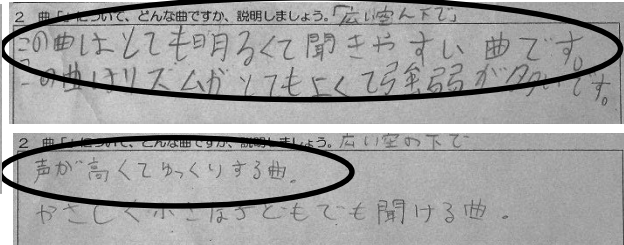 2 曲「」について、どんな曲ですか、説明しましょう。「広い空の下で」
この曲はとても明るくて聞きやすい曲です。
この曲はリズムがとてもよくて強弱が多いです。
2 曲「」について、どんな曲ですか、説明しましょう。広い空の下で
声が高くてゆっくりする曲。
やさしく小さな子どもでも聞ける曲。